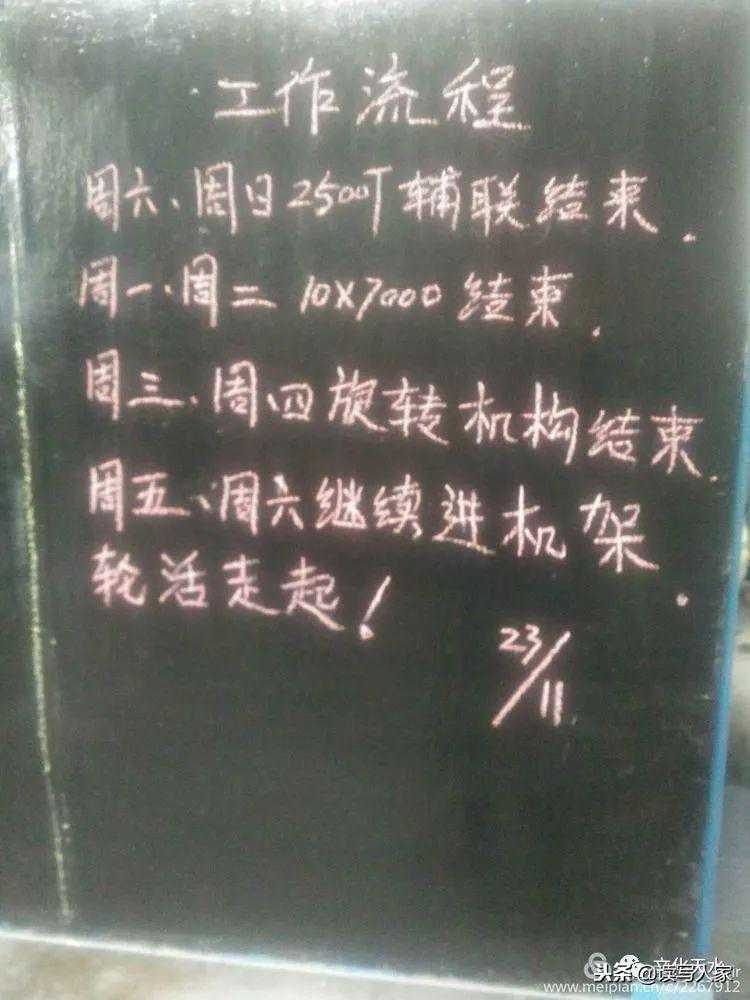 工作流程
周六、周日2500T辅联结束.
周一、周二 10X7000 结束.
周三、周四旋转机构结束.
周五、周六继续进机架.
轮活走起！
23/11
头条@读写人家
www.meipian.cn/c/2267912